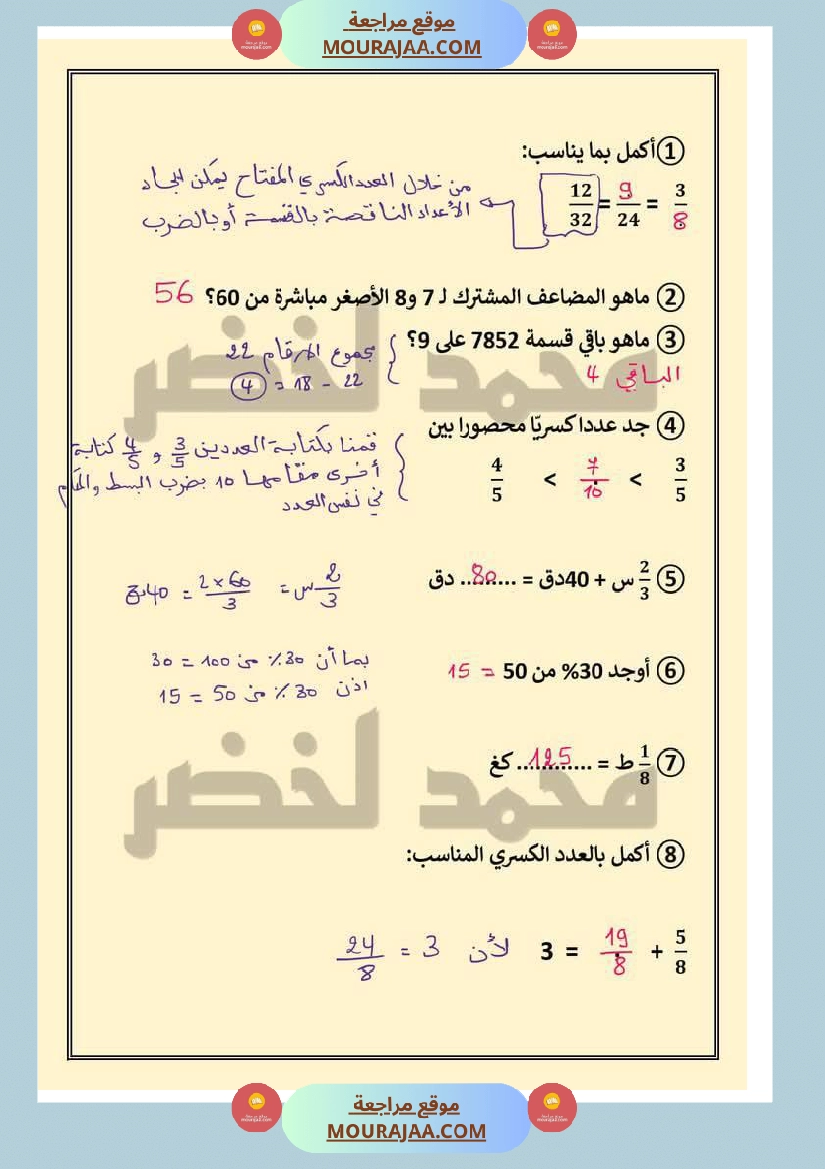 موقع مراجعة
MOURAJAA.COM
① أكمل بما يناسب:
3/8 = 9/24 = 12/32
من خلال العدد الكسري المفتاح يمكن إيجاد
الأعداد الناقصة بالقسمة أو بالضرب
② ماهو المضاعف المشترك لـ 7 و8 الأصغر مباشرة من 60؟ 56
③ ماهو باقي قسمة 7852 على 9؟
الباقي 4
مجموع الارقام 22
22 - 18 = 4
④ جد عددا كسريّا محصورا بين
3/5 < 7/10 < 4/5
قمنا بكتابة العددين 3/5 و 4/5 كتابة
أخرى مقامها 10 بضرب البسط والمقام
في نفس العدد
⑤ 2/3 س + 40دق = ...80... دق
2/3 س = 2×60/3 = 40دق
⑥ أوجد 30% من 50 = 15
بما أن 30٪ من 100 = 30
اذن 30٪ من 50 = 15
⑦ 1/8 ط = ...125... كغ
⑧ أكمل بالعدد الكسري المناسب:
5/8 + 19/8 = 3 لأن 3 = 24/8
محمد لخضر
محمد لخضر
موقع مراجعة
MOURAJAA.COM